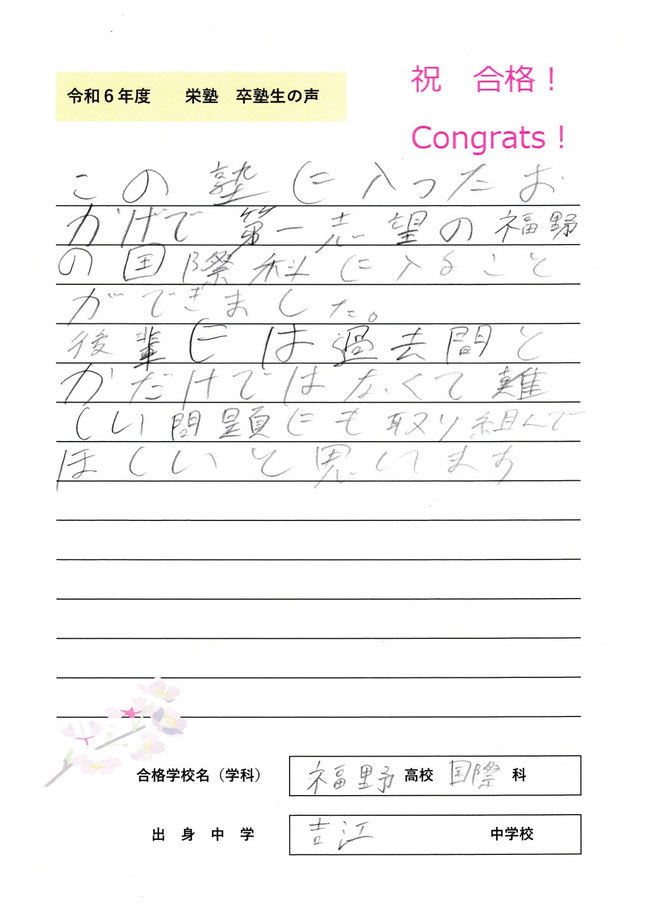 令和６年度　　栄塾　卒塾生の声
祝　合格！
Congrats！
この塾に入ったお
かげで第一志望の福野
の国際科に入ること
ができました。
後輩には過去問と
かだけではなくて難
しい問題にも取り組んで
ほしいと思います
合格学校名（学科）　福野 高校 国際 科
出　身　中　学　吉江　中学校